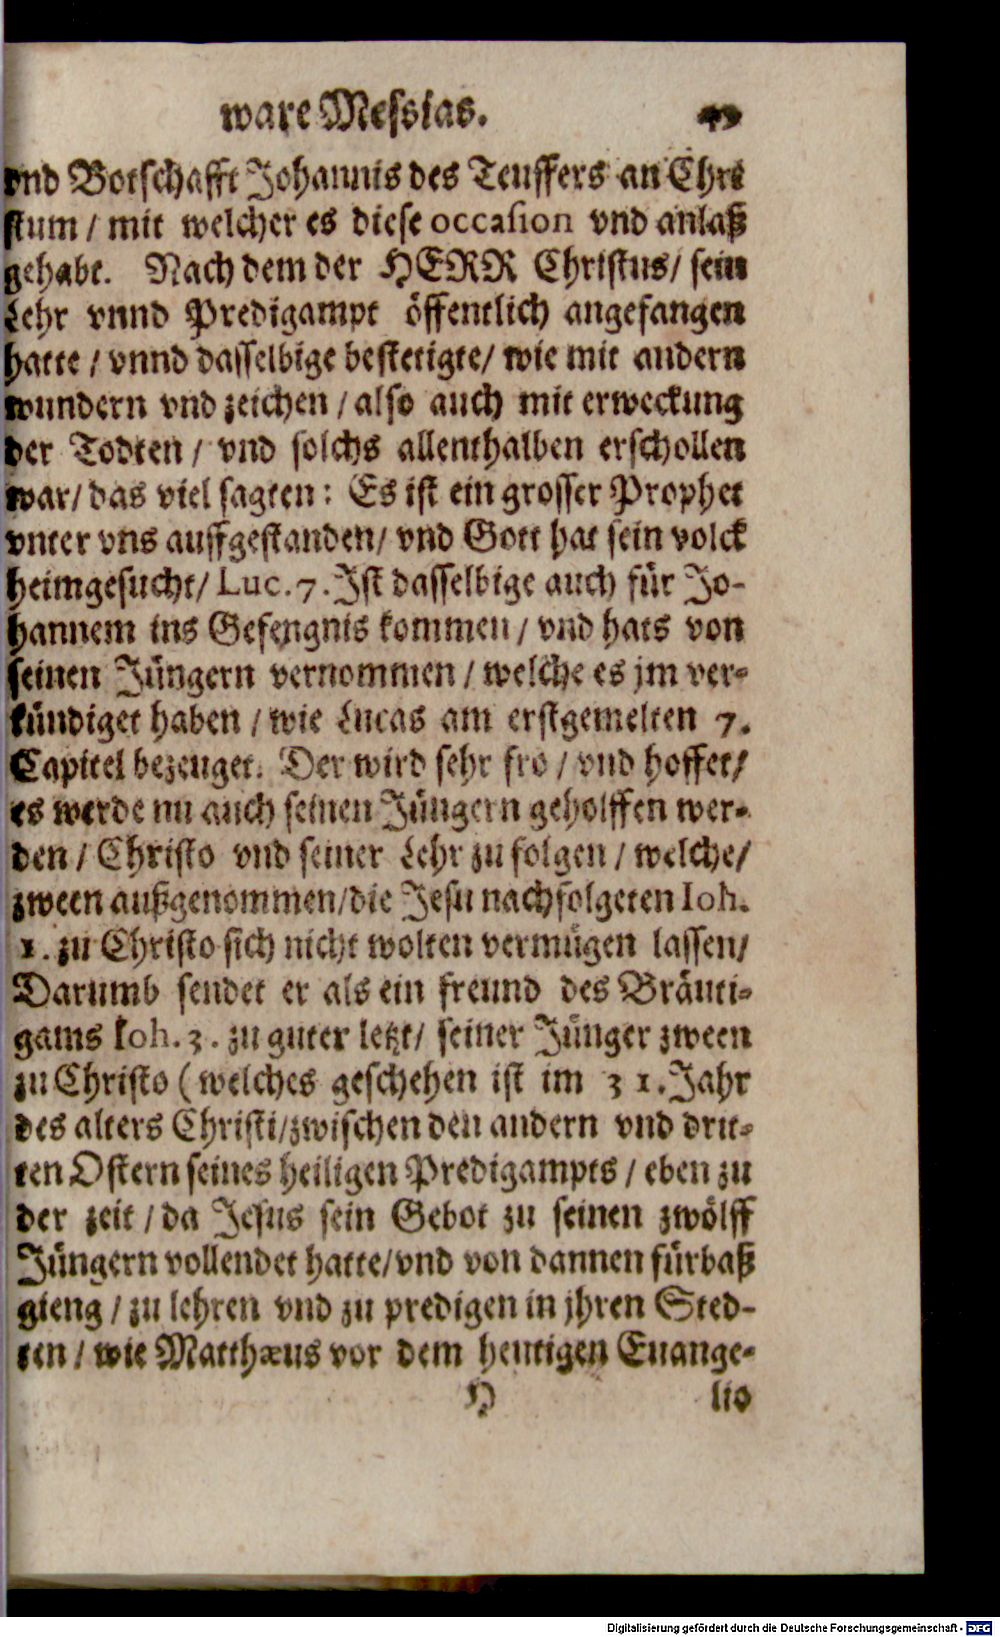 ware Messias. 49
vnd Botschafft Johannis des Teuffers an Chri
stum / mit welcher es diese occasion vnd anlaß
gehabt. Nach dem der HERR Christus / sein
Lehr vnnd Predigampt öffentlich angefangen
hatte / vnnd dasselbige bestetigte / wie mit andern
wundern vnd zeichen / also auch mit erweckung
der Todten / vnd solchs allenthalben erschollen
war / das viel sagten: Es ist ein grosser Prophet
vnter vns auffgestanden / vnd Gott hat sein volck
heimgesucht / Luc. 7. Ist dasselbige auch für Jo-
hannem ins Gefengnis kommen / vnd hats von
seinen Jüngern vernommen / welche es jm ver-
kündiget haben / wie Lucas am erstgemelten 7.
Capitel bezeuget. Der wird sehr fro / vnd hoffet /
es werde nu auch seinen Jüngern geholffen wer-
den / Christo vnd seiner Lehr zu folgen / welche /
zween außgenommen / die Jesu nachfolgeten Ioh.
1. zu Christo sich nicht wolten vermügen lassen /
Darumb sendet er als ein freund des Bräuti-
gams Ioh. 3. zu guter letzt / seiner Jünger zween
zu Christo ( welches geschehen ist im 31. Jahr
des alters Christi / zwischen den andern vnd drit-
ten Ostern seines heiligen Predigampts / eben zu
der zeit / da Jesus sein Gebot zu seinen zwölff
Jüngern vollendet hatte / vnd von dannen fürbaß
gieng / zu lehren vnd zu predigen in jhren Sted-
ten / wie Matthæus vor dem heutigen Euange-
H lio
Digitalisierung gefördert durch die Deutsche Forschungsgemeinschaft - DFG